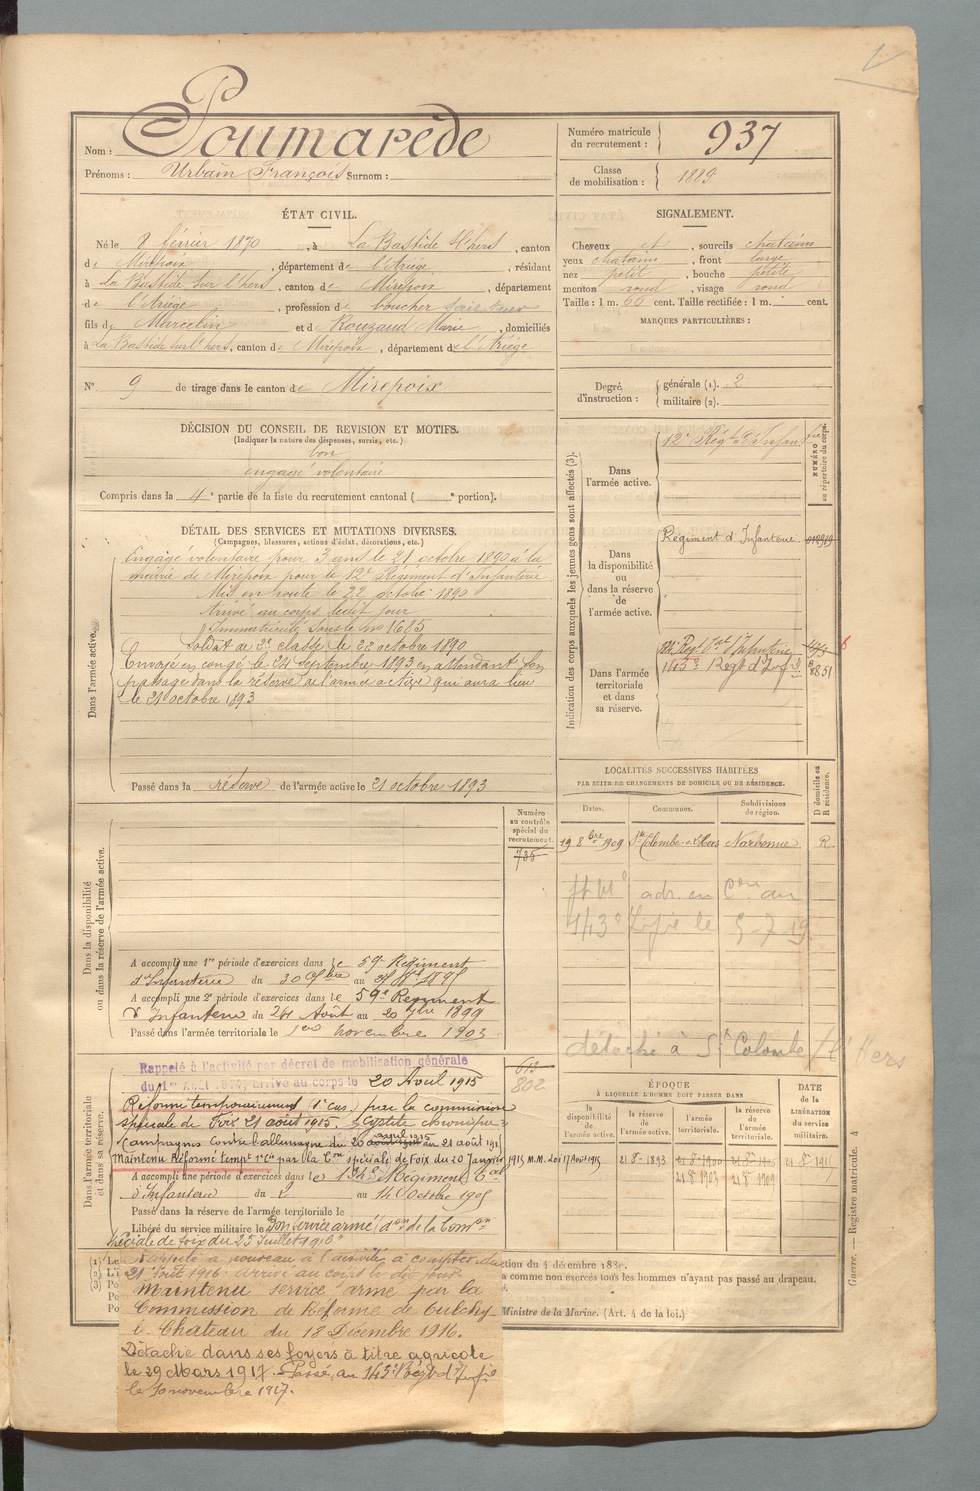 Nom : Poumarède
Prénoms : Urbain François Surnom :
Numéro matricule du recrutement : 937
Classe de mobilisation : 1889
ÉTAT CIVIL.
Né le 8 février 1870, à La Bastide l'hers, canton
de Mirepoix, département de l'Ariège, résidant
à La Bastide sur l'hers, canton de Mirepoix, département
de l'Ariège, profession de boucher
fils de Marcelin et de Rouzaud Marie, domiciliés
à La Bastide sur l'hers, canton de Mirepoix, département de l'Ariège
SIGNALEMENT.
Cheveux et, sourcils chatains
yeux chatains, front large
nez petit, bouche petite
menton rond, visage rond
Taille : 1 m. 66 cent. Taille rectifiée : 1 m. cent.
MARQUES PARTICULIÈRES :
N° 9 de tirage dans le canton de Mirepoix
Degré d'instruction : générale (1). 2
militaire (2).
DÉCISION DU CONSEIL DE REVISION ET MOTIFS.
(Indiquer la nature des dispenses, sursis, etc.)
bon
engagé volontaire
Compris dans la 4e partie de la liste du recrutement cantonal ( e portion).
DÉTAIL DES SERVICES ET MUTATIONS DIVERSES.
(Campagnes, blessures, actions d'éclat, décorations, etc.)
Dans l'armée active.
Engagé volontaire pour 3 ans le 21 octobre 1890 à la
mairie de Mirepoix pour le 12e Régiment d'Infanterie
Mis en route le 22 octobre 1890
Arrivé au corps ledit jour
Immatriculé sous le no 1685
Soldat de 2e classe le 22 octobre 1890
Envoyé en congé le 24 Septembre 1893 en attendant son
passage dans la réserve de l'armée active qui aura lieu
le 21 octobre 1893
Passé dans la réserve de l'armée active le 21 octobre 1893
Indication des corps auxquels les jeunes gens sont affectés (3).
NUMÉRO au répertoire du corps.
Dans l'armée active.
12e Régt d'Infanterie
Dans la disponibilité ou dans la réserve de l'armée active.
Régiment d'Infanterie
Dans l'armée territoriale et dans sa réserve.
143e Régt d'Inf.
8851
LOCALITÉS SUCCESSIVES HABITÉES
PAR SUITE DE CHANGEMENTS DE DOMICILE OU DE RÉSIDENCE.
Dates. Communes. Subdivisions de région. D domicile ou R résidence.
19 8bre 1909 Ste Colombe s. l'Hers Narbonne R
au
143e Infie le 5-7-19
détaché à Ste Colombe s/ l'Hers
Dans la disponibilité ou dans la réserve de l'armée active.
Numéro au contrôle spécial du recrutement.
735
A accompli une 1re période d'exercices dans le 59e Régiment
d'Infanterie du 30 au
A accompli une 2e période d'exercices dans le 59e Régiment
d'Infanterie du 24 Août au 20 7bre 1899
Passé dans l'armée territoriale le 1er novembre 1903
Dans l'armée territoriale et dans sa réserve.
613
802
Rappelé à l'activité par décret de mobilisation générale
du 1er Août 1914, arrivé au corps le 20 Avril 1915
Réformé temporairement 1e cat. par la commission
spéciale de Foix 21 août 1915.
Campagnes contre l'allemagne du 20 avril 1915 au 21 août 1915
Maintenu Réformé tempt 1e Cie par la Con spéciale de Foix du 20 Janvier 1915 M.M. Loi 17 Août 1915
A accompli une période d'exercices dans le 132e Régiment tal
d'Infanterie du 2 au 14 Octobre 1905
Passé dans la réserve de l'armée territoriale le
Libéré du service militaire le "Bon service armé" don de la Comon
spéciale de Foix du 25 Juillet 1916
ÉPOQUE
À LAQUELLE L'HOMME DOIT PASSER DANS
la disponibilité de l'armée active. la réserve de l'armée active. l'armée territoriale. la réserve de l'armée territoriale.
DATE DE LA LIBÉRATION du service militaire.
21 8 1893
21 8 1903 21 8 1909
Rappelé à nouveau à l'activité à compter du
21 Août 1916. Arrivé au corps le dit jour
Maintenu service armé par la
Commission de Réforme de Oulchy
le Chateau du 18 Décembre 1916.
Détaché dans ses foyers à titre agricole
le 29 Mars 1917. Passé au 143e Régt d'Infie
le 10 novembre 1917.
ction du 4 décembre 1889.
a comme non exercés tous les hommes n'ayant pas passé au drapeau.
Ministre de la Marine. (Art. 4 de la loi.)
Guerre. — Registre matricule. 4